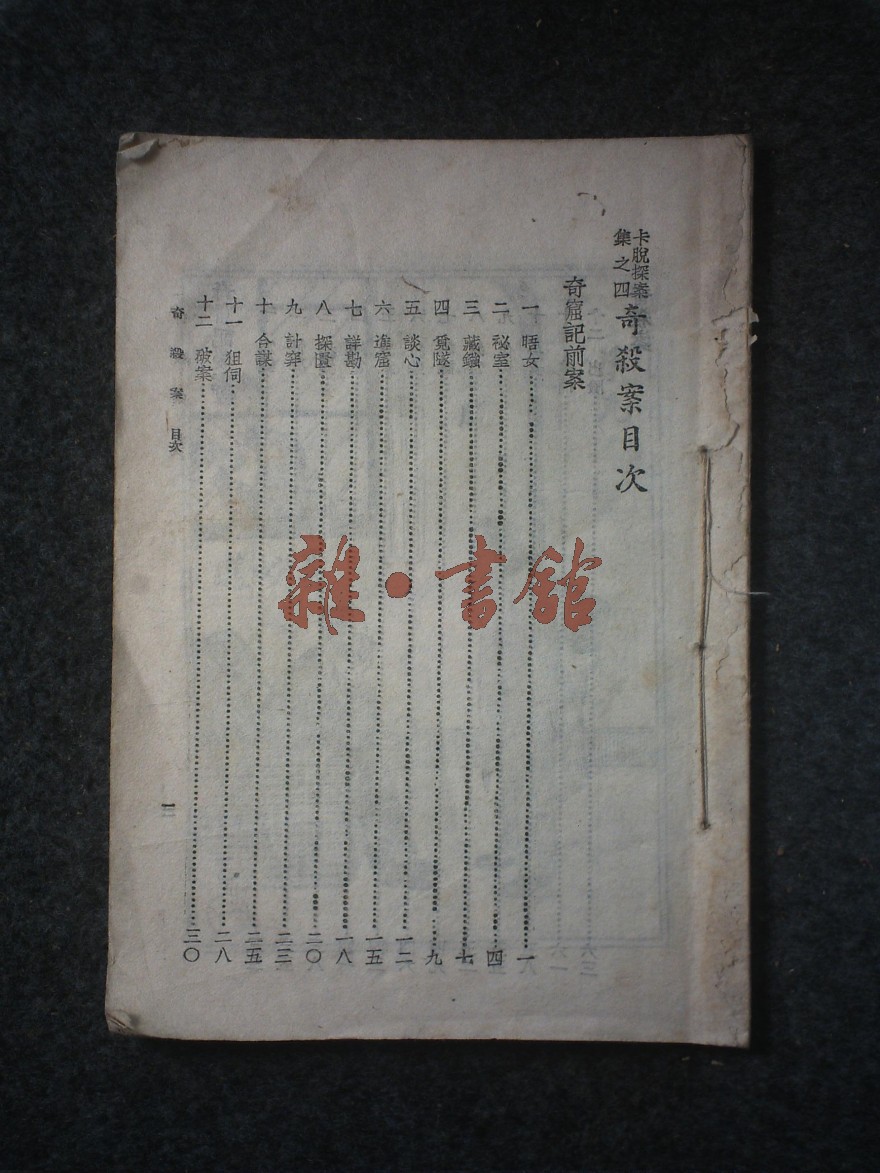 卡脫探案
集之四
奇殺案目次
奇窟記前案
一 晤女 一
二 秘室 四
三 藏鏹 七
四 覓隧 九
五 談心 一二
六 進窟 一五
七 詳勘 一八
八 探賾 二〇
九 計穽 二三
十 合謀 二五
十一 狙伺 二八
十二 破案 三〇
奇殺案 目次
一
雜·書館